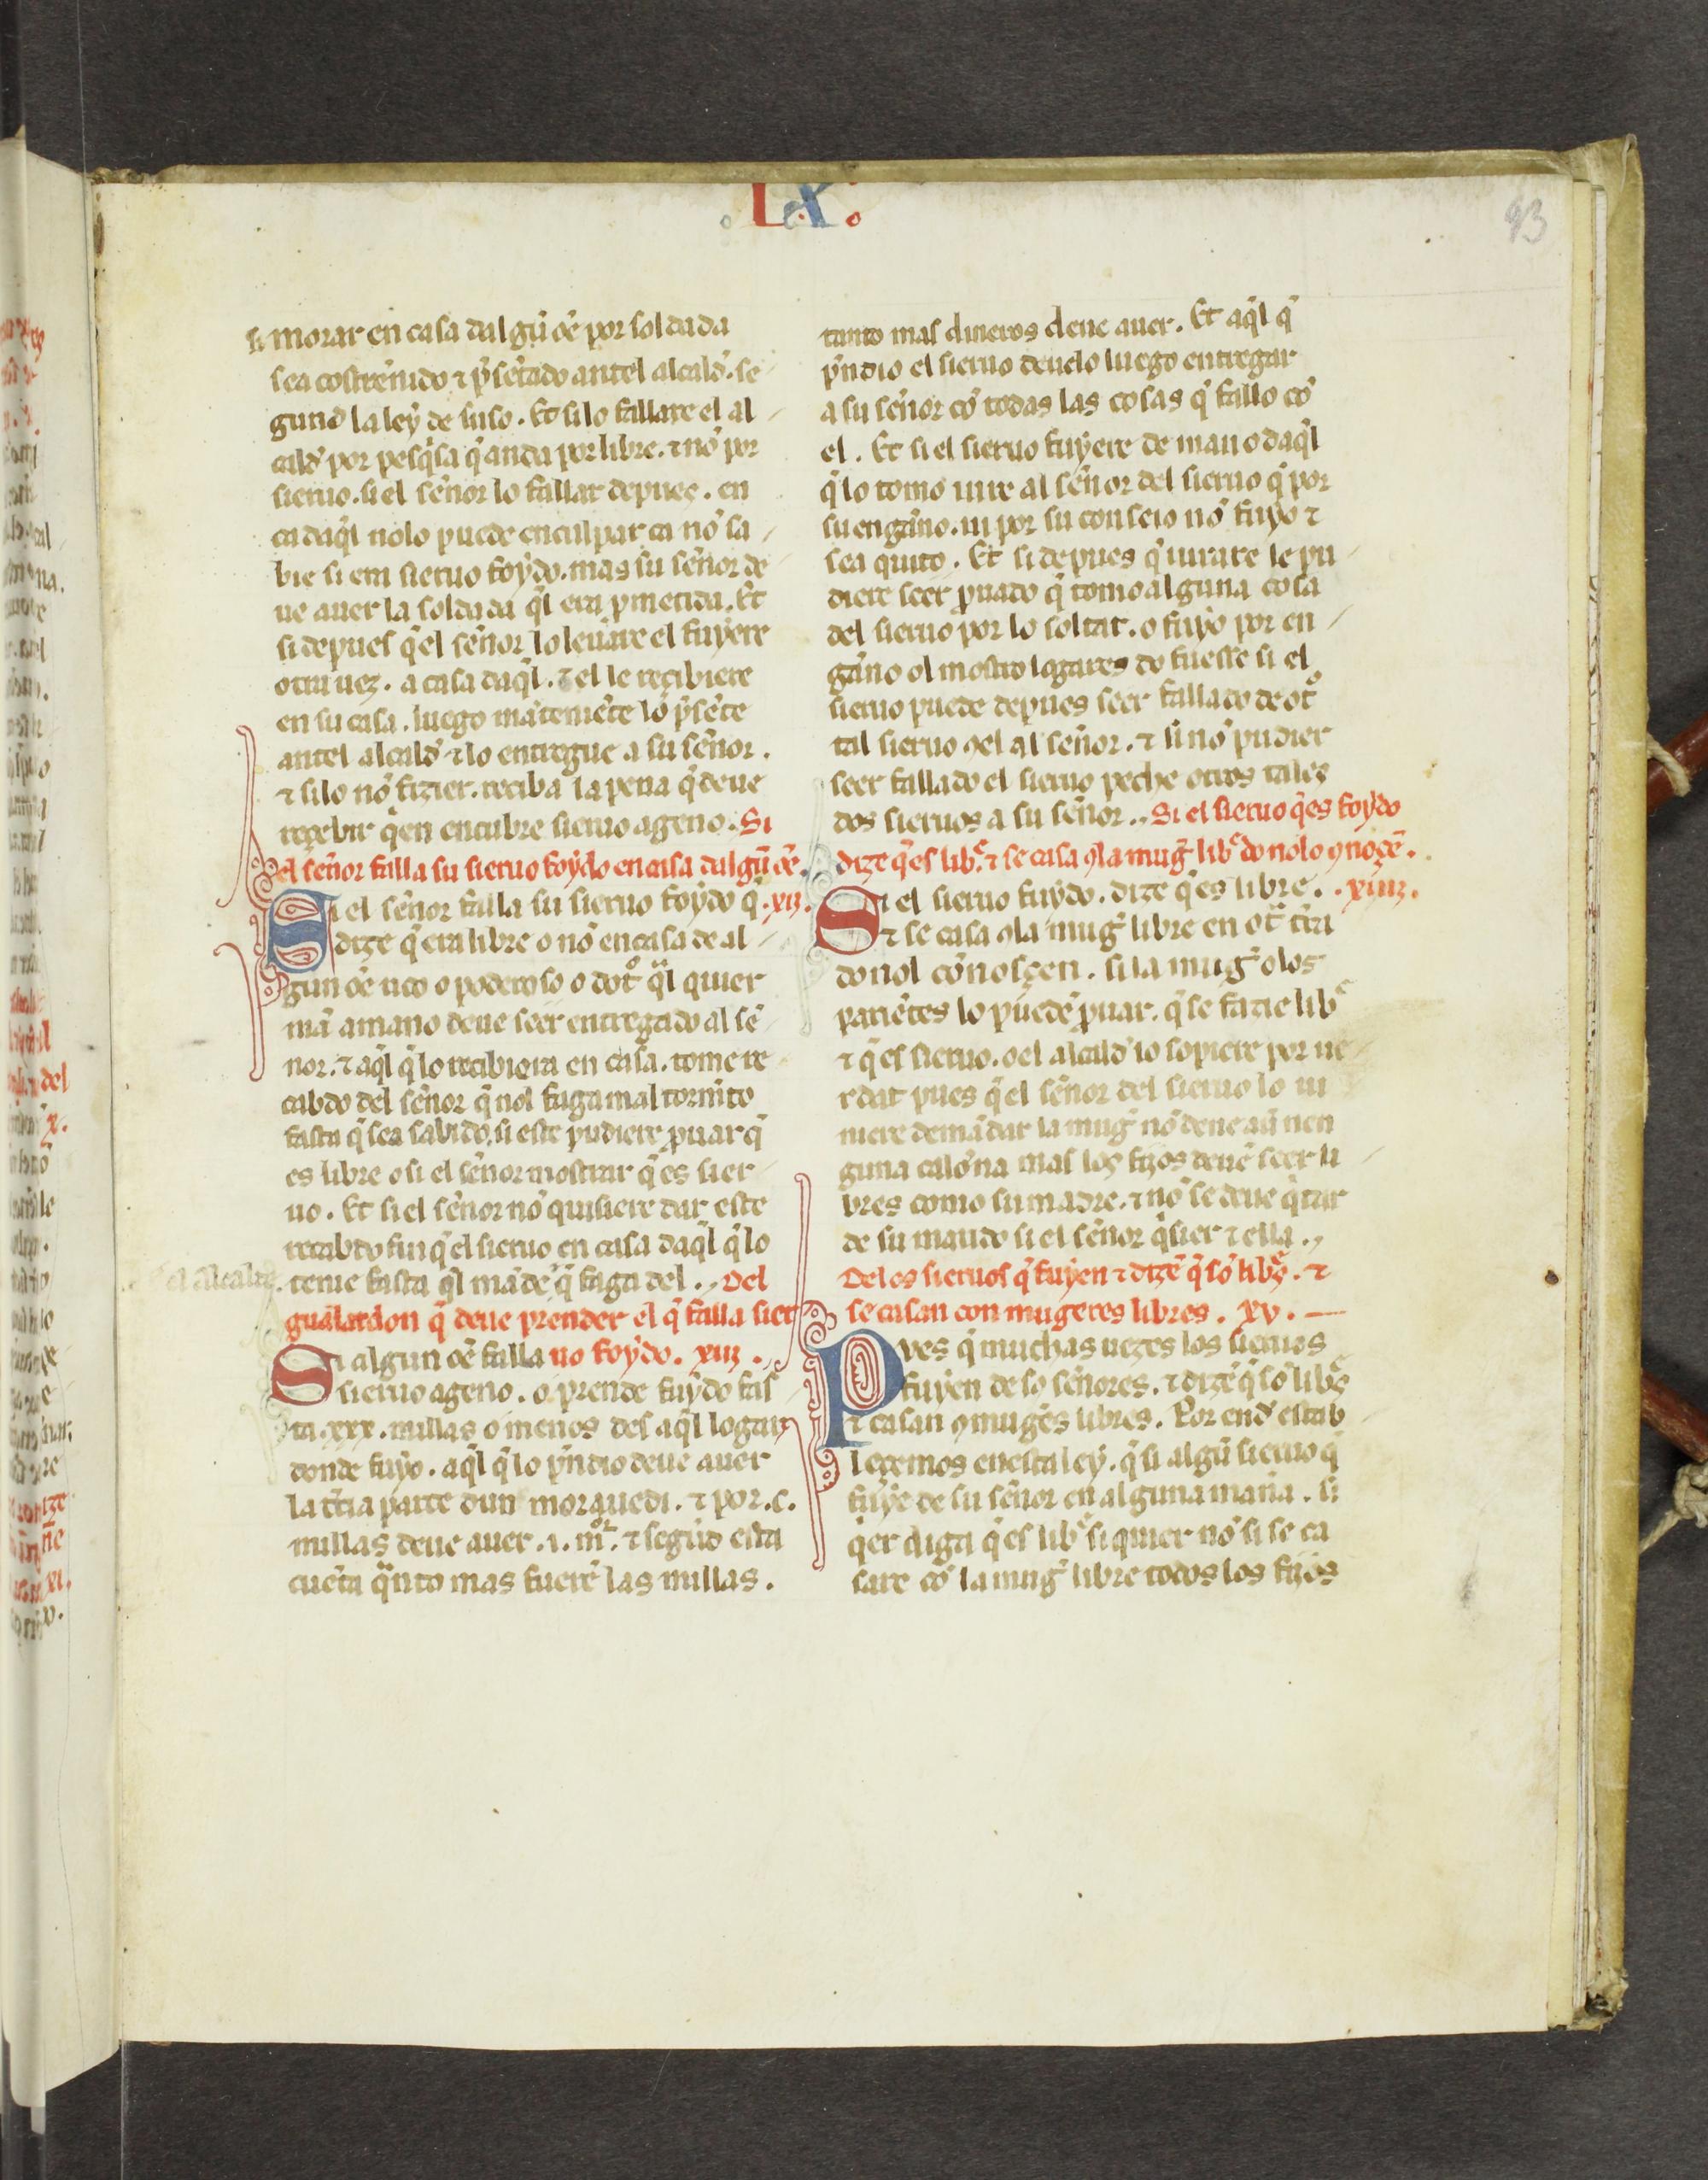 .LX.
93
si morar en casa dalgũ oẽ por soldada
sea costrenido ⁊ p̃sẽtado antel alcald̃. se
gund la ley de suso. Et si lo fallare el al
cald̃ por pesq̃sa q̃ anda por libre. ⁊ nõ por
sieruo. si el señor lo fallar depues. en
cadaq̃l nolo puede enculpar ca nõ sa
bie si era sieruo foydo. mas su señor de
ue auer la soldada q̃l era ꝓmetida. Et
si depues q̃ el señor lo leuare el fuyere
otra uez. a casa daq̃l. ⁊ el le reçibiere
en su casa. luego mãteniẽte lo p̃sẽte
antel alcald̃ ⁊ lo entregue a su señor.
⁊ si lo nõ fizier. reciba la pena q̃ deue
reçebir q̃en encubre sieruo ageno. Si
el señor falla su sieruo foydo en casa dalgũ oẽ.
Si el señor falla su sieruo foydo q̃ .xii.
dize q̃ era libre o nõ en casa de al
gun oẽ rico o poderoso o dotº q̃l quier
mã amano deue seer entregado al se
ñor. ⁊ aq̃l q̃ lo recibiera en casa. tome re
cabdo del señor q̃ nol faga mal tormẽto
fasta q̃ sea sabido. si este pudiere ꝓuar q̃
es libre o si el señor mostrar q̃ es sier
uo. Et si el señor nõ quisiere dar este
recabdo finq̃ el sieruo en casa daq̃l q̃ lo
el alcalde
tenie fasta q̃l mãde q̃ faga del. Del
gualardon q̃ deue prender el q̃ falla sier
Si algun oẽ falla uo foydo. xiii.
sieruo ageno. o prende fuydo fas
ta .xxx. millas o menos des aq̃l logar
donde fuyo. aq̃l q̃ lo p̃ndio deue auer
la tc̃ia parte dun morauedi. ⁊ por .c.
millas deue auer .i. mr̃. ⁊ segũd esta
cuẽta q̃nto mas fuerẽ las millas.
tanto mas dineros deue auer. Et aq̃l q̃
p̃ndio el sieruo deuelo luego entregar
a su señor cõ todas las cosas q̃ fallo cõ
el. Et si el sieruo fuyere de mano daq̃l
q̃ lo tomo iure al señor del sieruo q̃ por
su engaño. ni por su conseio nõ fuyo ⁊
sea quito. Et si depues q̃ iurare le pu
diere seer ꝓuado q̃ tomo alguna cosa
del sieruo por lo soltar. o fuyo por en
gaño ol mostro logares do fuesse si el
sieruo puede depues seer fallado de otº
tal sieruo ꝯel al señor. ⁊ si nõ pudier
seer fallado el sieruo peche otros tales
dos sieruos a su señor. Si el sieruo q̃ es foydo
dize q̃ es libe ⁊ se casa ꝯla mug̃ libe do nolo ꝯnoçẽ.
Si el sieruo fuydo. dize q̃ es libre. .xiiii.
⁊ se casa ꝯla mug̃ libre en ot̃ tr̃ra
do nol conosçen. si la mug̃ o los
pariẽtes lo puedẽ ꝓuar. q̃ se fazie libe
⁊ q̃ es sieruo. o el alcald̃ lo sopiere por ue
rdat pues q̃ el señor del sieruo lo ui
niere demãdar la mug̃ nõ deue aũ nen
guna calõna mas los fijos deuẽ seer li
bres como su madre. ⁊ nõ se deue q̃tar
de su marido si el señor q̃sier ⁊ ella.
Delos sieruos q̃ fuyen ⁊ dizẽ q̃ sõ libes. ⁊
se casan con mugeres libres. xv.
Pves q̃ muchas uezes los sieruos
fuyen de so señores. ⁊ dizẽ q̃ sõ libes
⁊ casan ꝯ mug̃es libres. Por end̃ estab
leçemos en esta ley. q̃ si algũ sieruo q̃
fuye de su señor en alguna mañã. si
q̃er diga q̃ es libe si quier nõ si se ca
sare cõ la mug̃ libre todos los fijos